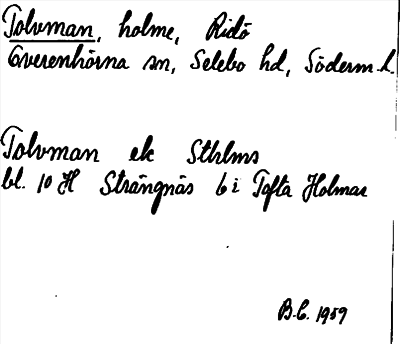 Tolvman, holme, Ridö
Överenhörna sn, Selebo hd, Söderm. l.
Tolvman ek Sthlms
bl. 10 H Strängnäs 6 i Tofta Holmar
B.C. 1959